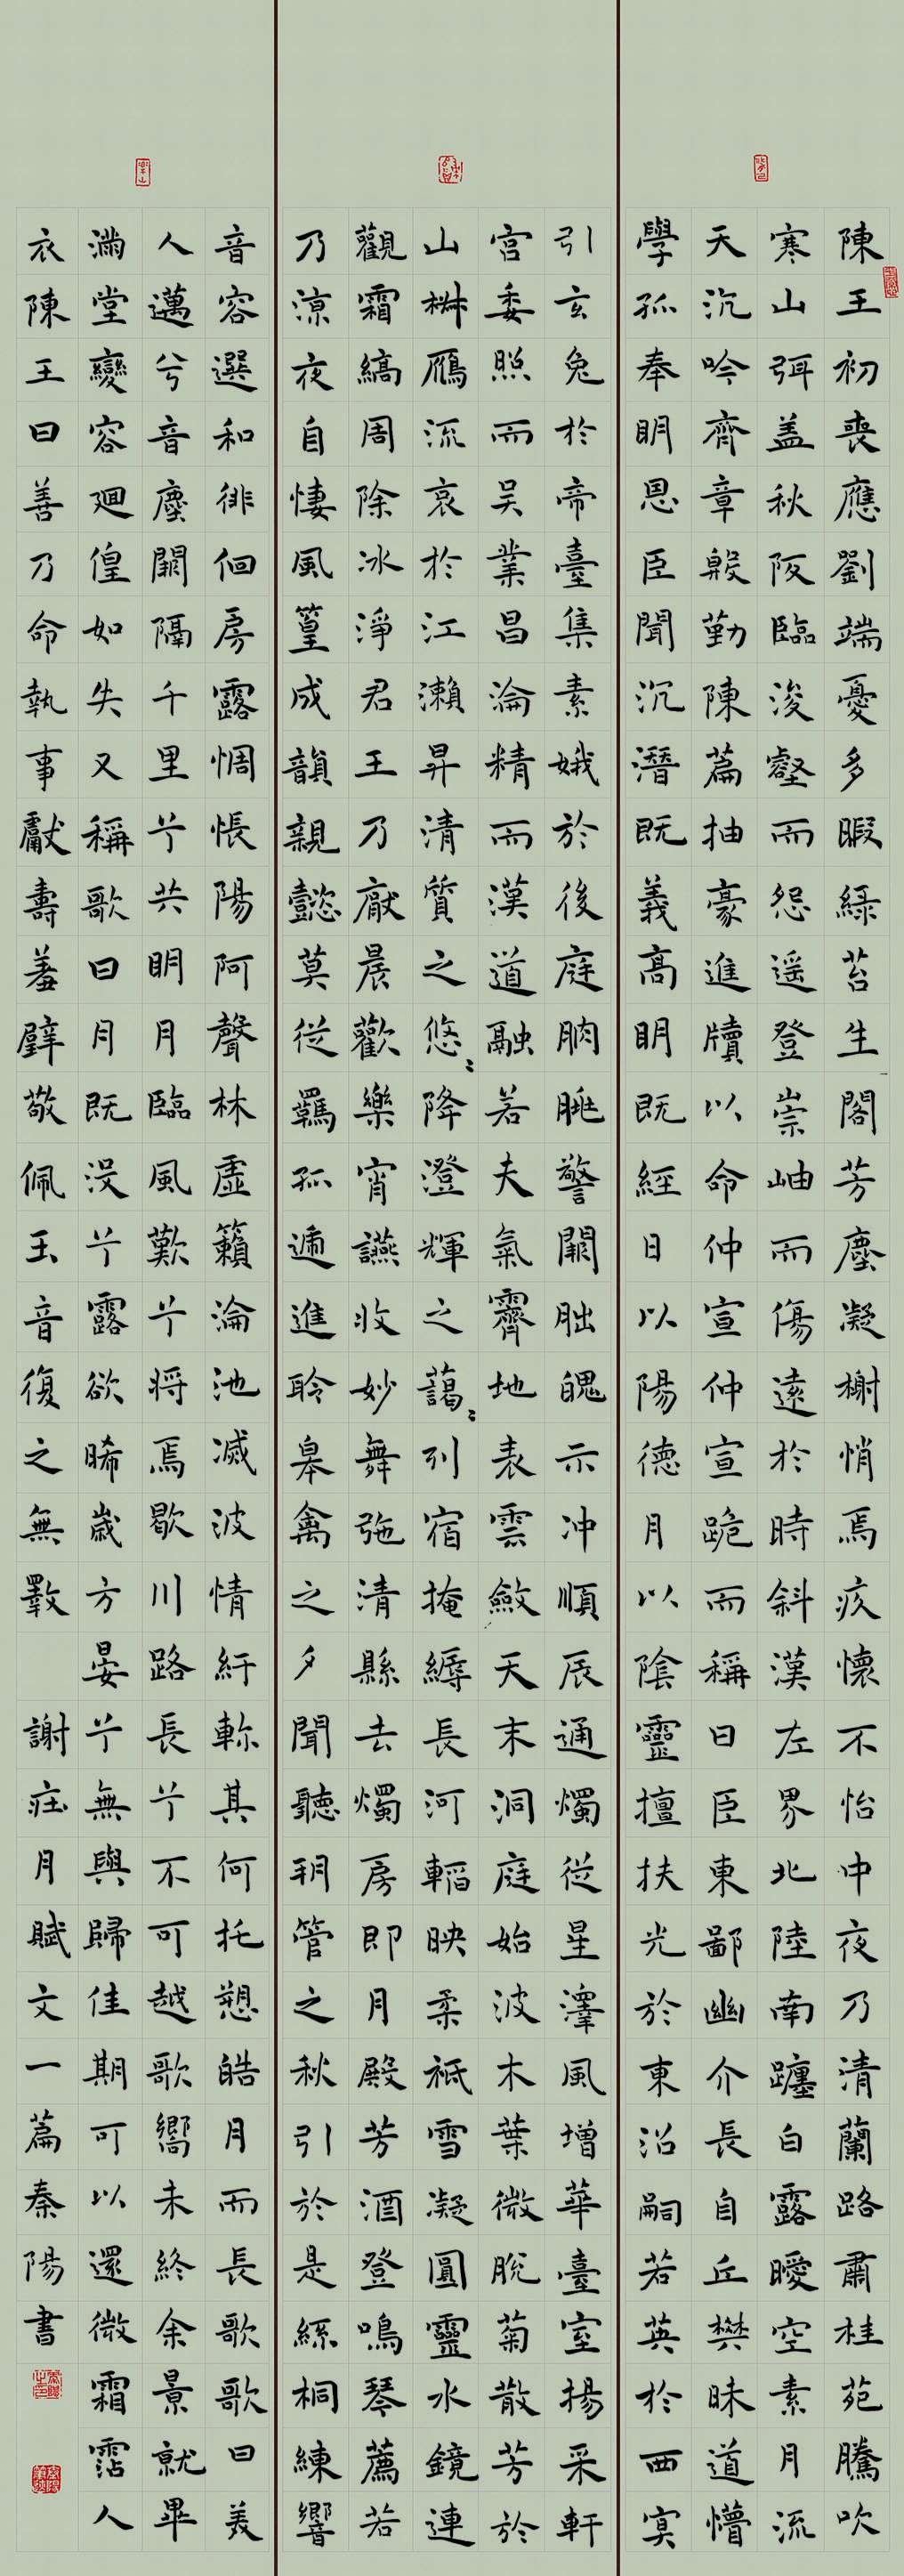 陳王初喪應劉端憂多暇緑苔生閣芳塵凝榭悄焉疚懷不怡中夜乃清蘭路肅桂苑騰吹
寒山弭盖秋阪臨浚壑而怨遥登崇岫而傷遠於時斜漢左界北陸南躔白露曖空素月流
天沉吟齊章殷勤陳篇抽豪進牘以命仲宣仲宣跪而稱曰臣東鄙幽介長自丘樊昧道懵
學孤奉明恩臣聞沉潛既義高明既經日以陽德月以陰靈擅扶光於東沼嗣若英於西冥
引玄兔於帝臺集素娥於後庭朒朓警闕朏魄示冲順辰通燭從星澤風增華臺室揚采軒
宮委照而吴業昌淪精而漢道融若夫氣霽地表雲斂天末洞庭始波木葉微脫菊散芳於
山椒雁流哀於江瀨昇清質之悠〻降澄輝之藹〻列宿掩縟長河韜映柔祇雪凝圓靈水鏡連
觀霜縞周除冰淨君王乃厭晨歡樂宵讌收妙舞弛清縣去燭房即月殿芳酒登鳴琴薦若
乃涼夜自悽風篁成韻親懿莫從羈孤遞進聆皋禽之夕聞聽朔管之秋引於是絲桐練響
音容選和徘徊房露惆悵陽阿聲林虛籟淪池滅波情紆軫其何托愬皓月而長歌歌曰美
人邁兮音塵闕隔千里兮共明月臨風歎兮將焉歇川路長兮不可越歌響未終余景就畢
滿堂變容迴徨如失又稱歌曰月既沒兮露欲晞歲方晏兮無與歸佳期可以還微霜霑人
衣陳王曰善乃命執事獻壽羞璧敬佩玉音復之無斁 謝莊月賦文一篇秦陽書